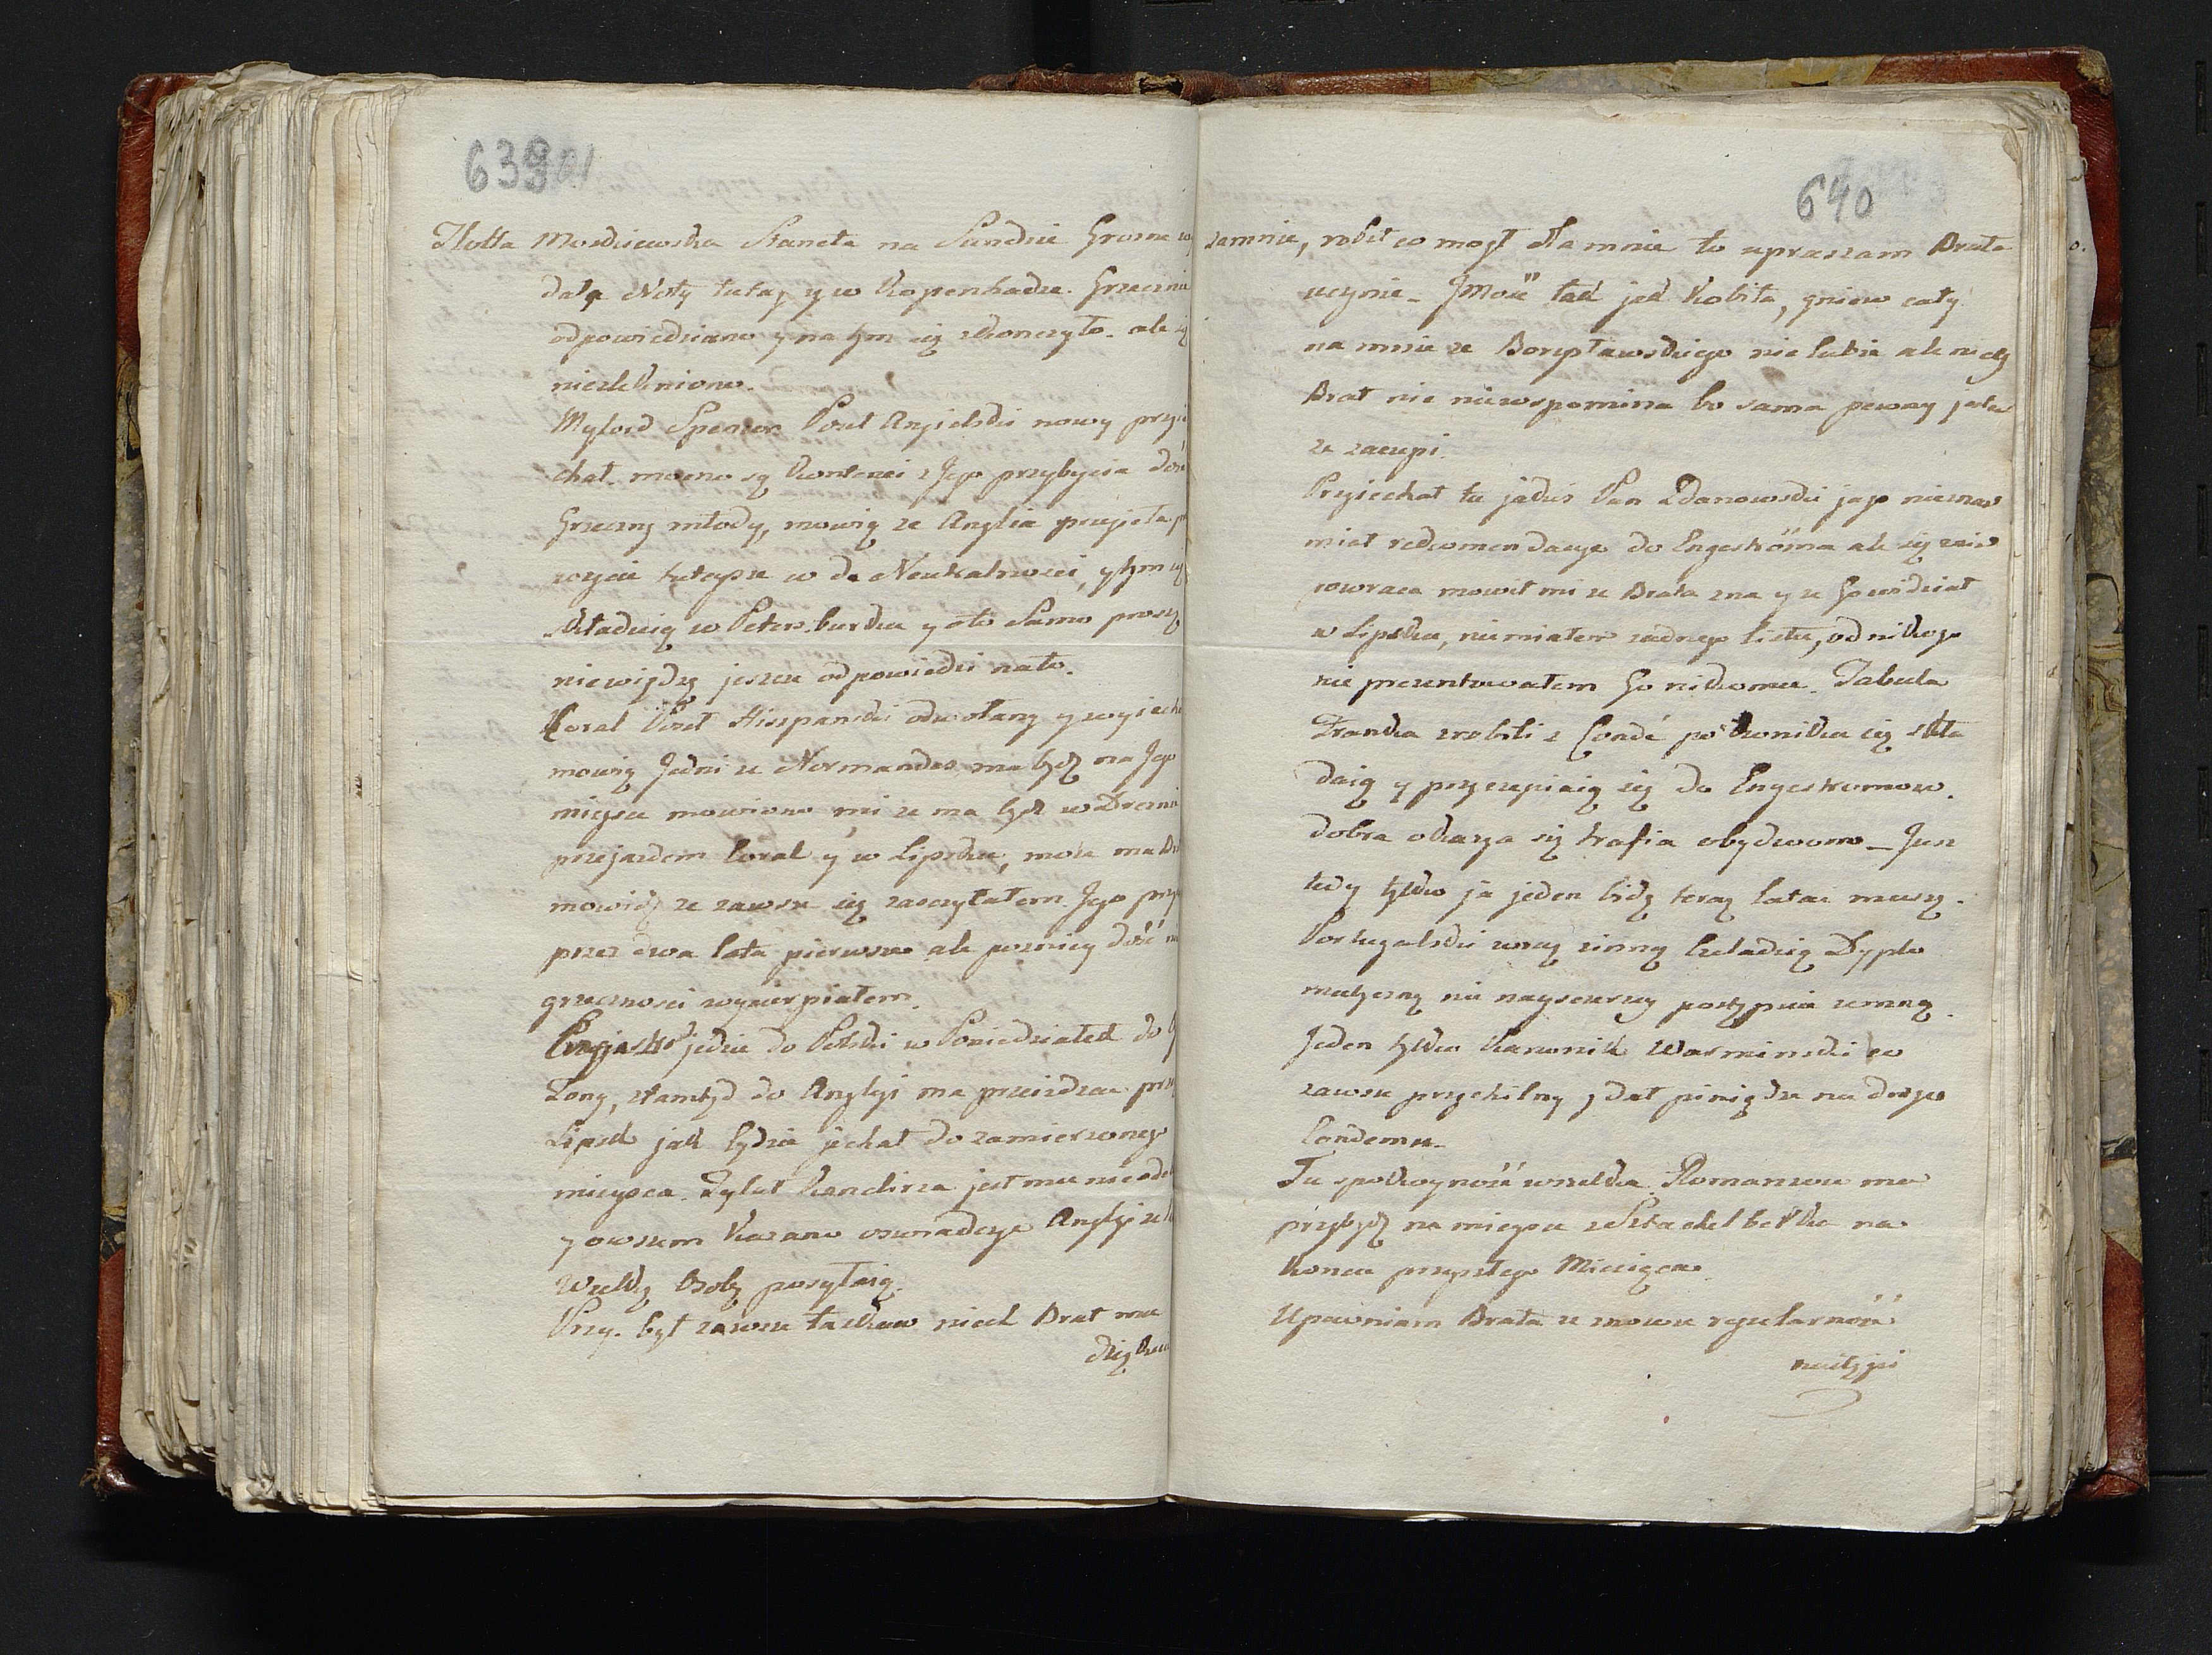 639
Flotta Moskiewska staneła na Sundzie Grozne
dałą Noty tutay y w Kopenhadze. Grzecznie
odpowiedziano y na tym się skonczyło. ale się
niezlękniono.
Mylord Spencer Poseł Angielski nowy przyie
chał. mocno są kontenci z Jego przybycia dosc
Grzeczny młody, mowią ze Anglia przyieła
zycie tuteysze w do Neutralnosci, y tym
składaią w Petersburku y oto samo proszą
niewiydzę jeszcze odpowiedzi nato.
Coral Poseł Hiszpanski odwołany y wyiecha
mowią Jedni ze Normandes ma bydz na Jego
mieysce mowiono mi ze ma bydz w Dreznie
przejazdem Coral y w Lipsku, moze ma
mowidz ze zawsze się zasczyłałem Jego przy
przez dwa lata pierwsze ale pozniey dość
grzecznosci wycierpiałem.
jedzie do Polski w Poniedziałek do
Zony, ztamtyd do Anglyi ma przeiezdzac prze
Lipsk jak bydzie jechał do zamierzonego
mieysca. Tytuł Kanclirza jest mu
y owszem kazano oswiadczye Anglyi ze
Wielką Osobę posyłaią.
Przy. był zawsze łaskaw niech Brat mu
dziękuie
640
zamnie, robił co mogł dla mnie to upraszam Brata
uczynic - JMość tak jak Kobita, gniew cały
na mnie ze Borysławskiego nie lubie ale niech
Brat nic niewspomina bo sama pewny jest
ze zaczepi.
Przyiechał tu jakis Pan Zdanowski jego nieznam
miał rekomendacye do Engeströma ale się zaiw
zowraca mowił mi ze Brata zna y ze Go widział
w Lipsku, niemiałem zadnego listu, od nikogo
nie prezentowałem Go nikomu. Tabula
Franka zrobili z Condé połkownika się skła
daią y przyczepiaią się do Engestromow.
dobra okazya się trafia obydwoom _ Jusz
tedy tylko ja jeden bidz teraz latac muszę.
Portugalski wraz zinną czeladzią Dyplo
matyczną nie nayszczerzy postypuia zemną.
Jeden tylko Kanonik Warminski co
zawsze przychilny y dał piniądze na drogę
Condemu.
Tu spokoyność wszelka Romanzow ma
przybydz na mieysce zSztackelberka na
koncu przyszłego Miesiąca
Upewniam Brata ze znowu regularność
nastąpi